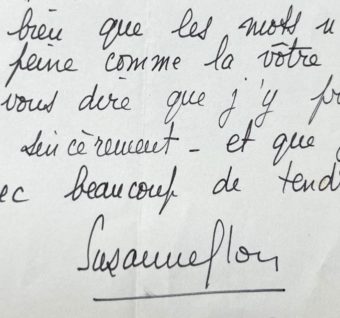 bien que les mots
peine comme la vôtre
vous dire que j'y
sincèrement - et que
beaucoup de
Suzanne Flon